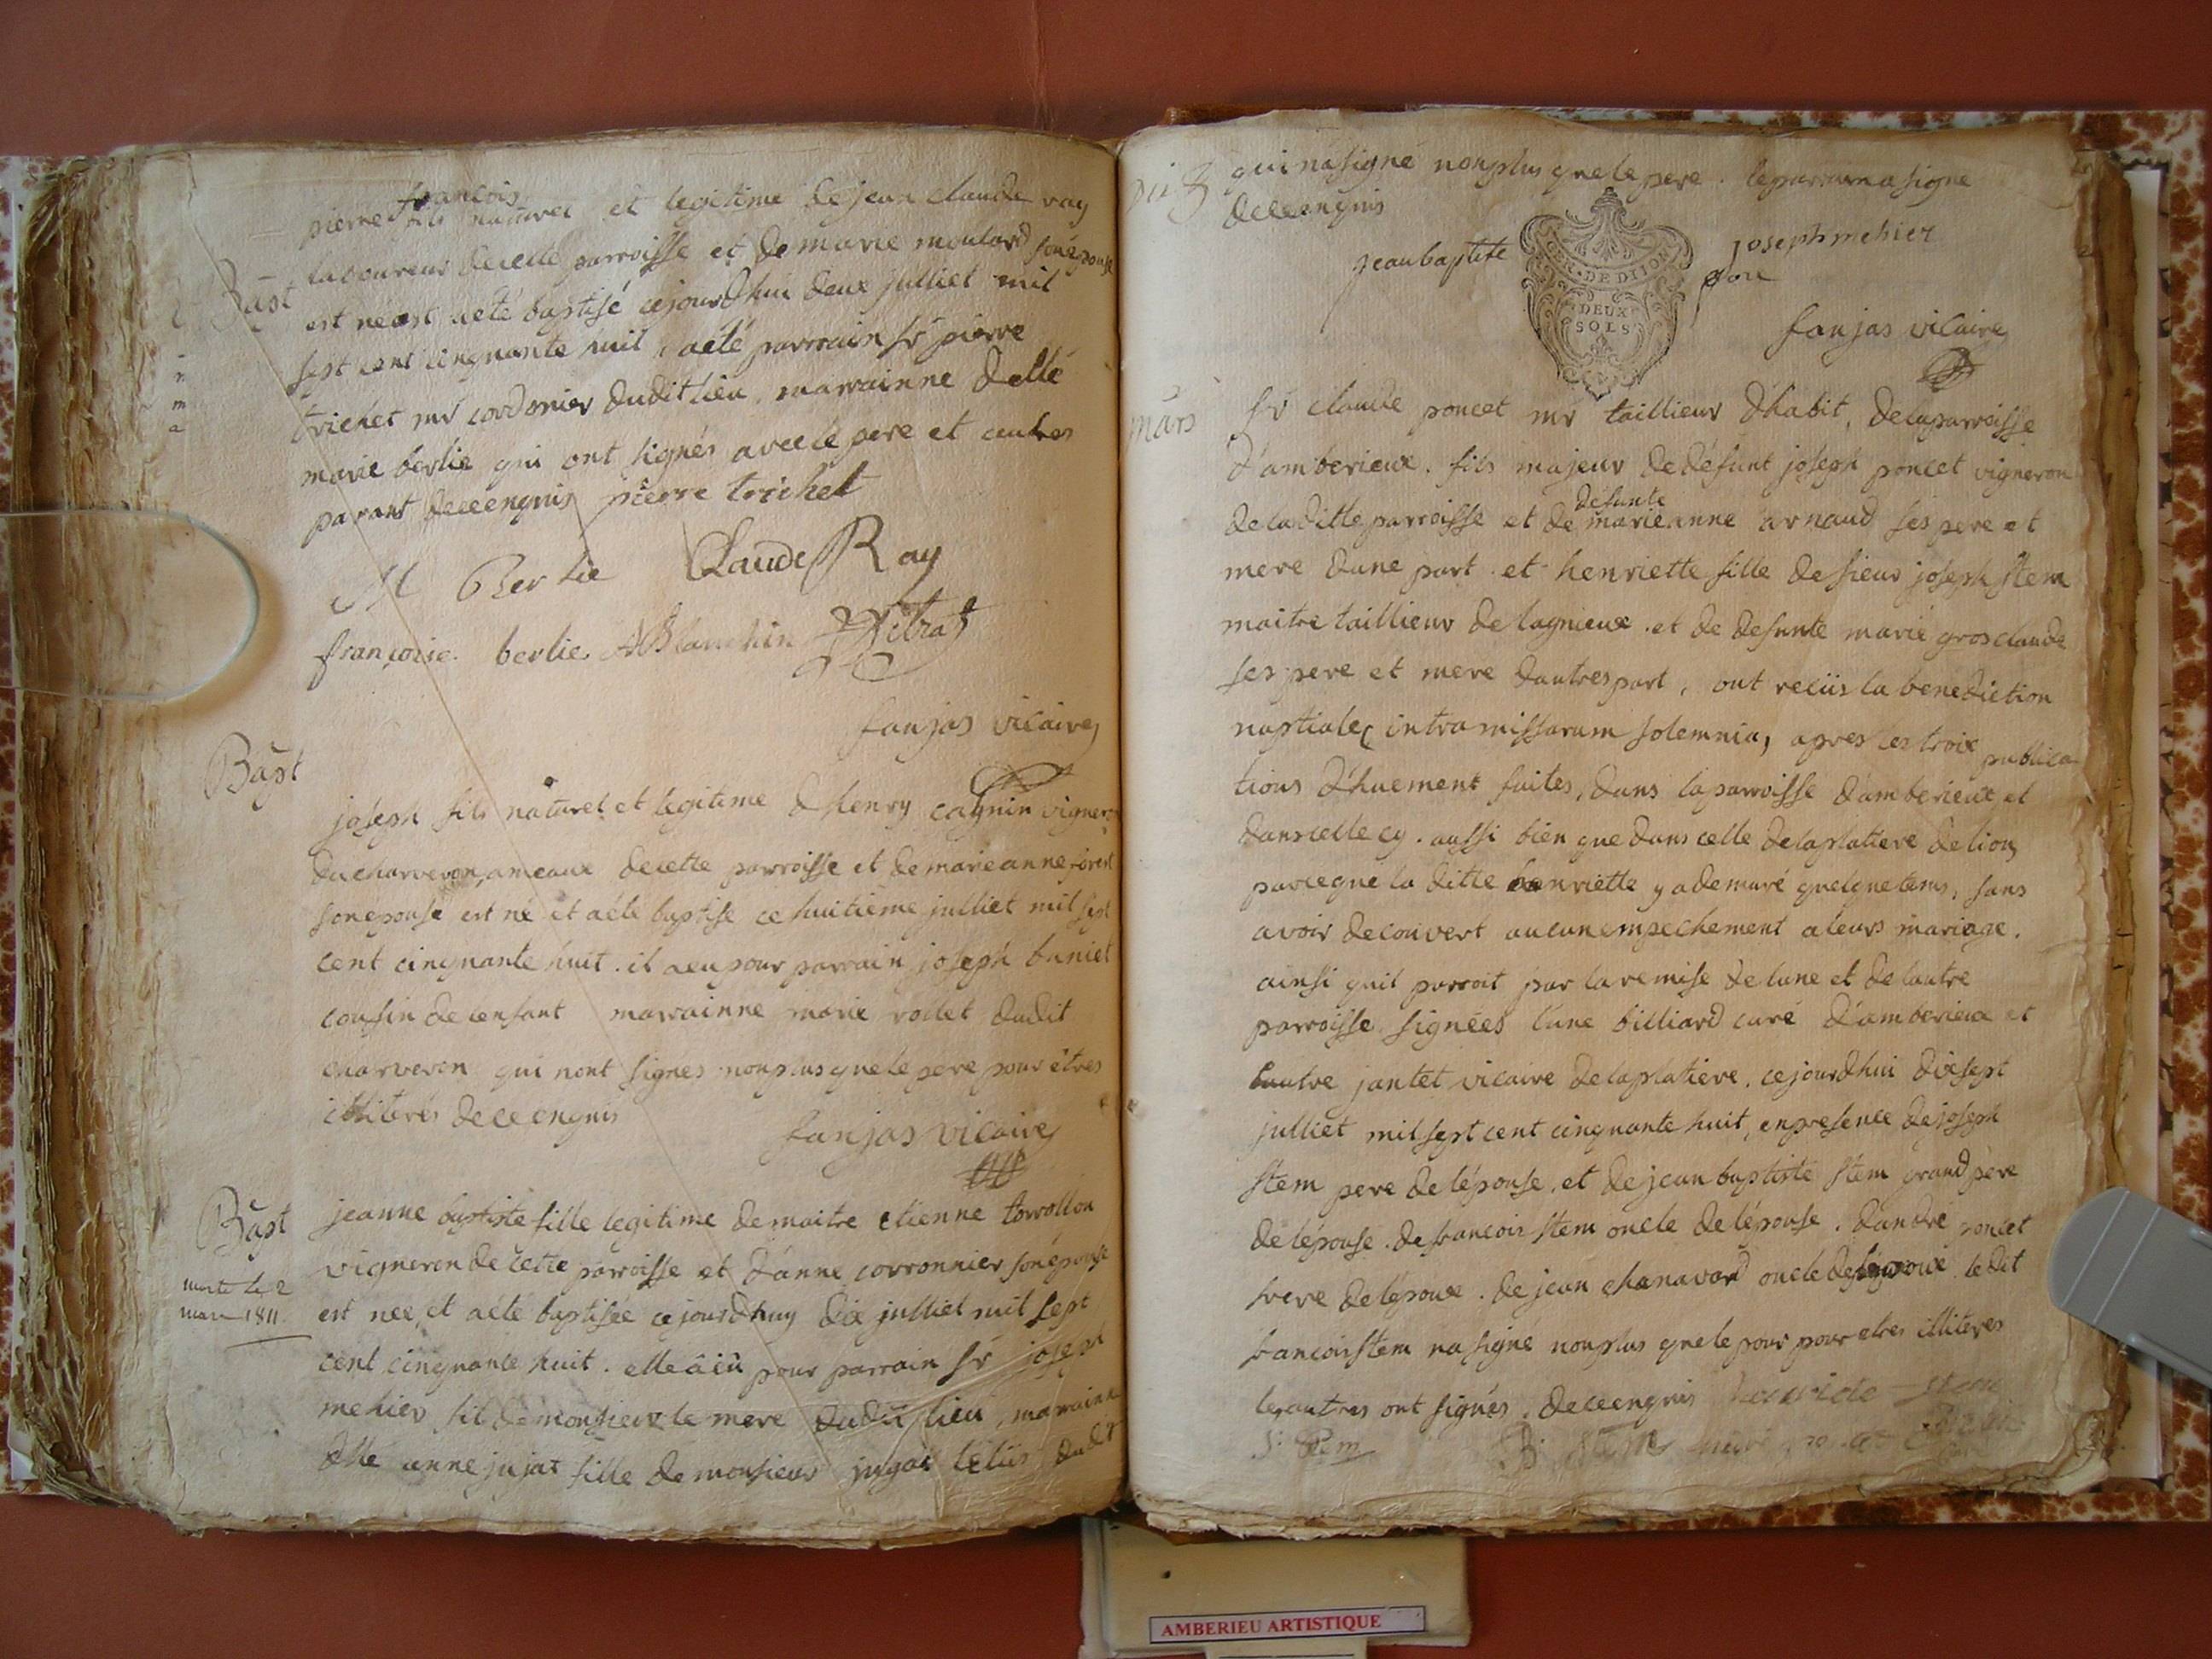 françois
pierre fils naturel et legitime de jean claude ray
Bapt
laboureur decette parroisse et de marie moulard sonépouse
est né et aété baptisé cejourdhui deux julliet mil
sept cent cinquante huit, aété parrain sr pierre
trichet mr cordonier dudit lieu, marrainne delle
marie berlie qui ont signés avec le pere et autres
parant deceenquis pierre trichet
M Berlie Claude Ray
françoise berlie Blanchin
faujas vicaire
Bapt
joseph fils naturel et legitime dhenry cagnin vigneron
ducharveron, ameaux decette parroisse et de marieanne
sonepouse est né et aété baptise ce huitieme julliet mil sept
cent cinquante huit. il aeu pour parrain joseph buniet
cousin delenfant marrainne marie rollet dudit
charveron qui nont signés nonplus quele pere pour étres
illiterés deceenquis
faujas vicaire
Bapt
morte le 2
mars 1811
jeanne baptiste fille legitime de maitre etienne torrollon
vigneron de cette parroisse et d'anne corronnier sonépouse
est nee, et aété baptisée cejourdhuy dix julliet mil sept
cent cinquante huit. elle a eû pour parrain sr joseph
mehier fil de monsieur le mere dudit lieu, marrainne
delle anne jujat fille de monsieur jugat dudit
qui nasigné nonplus quele pere. leparrain a signe
deceenquis
jeanbaptite
GEN. DE DIJON
DEUX
SOLS
josephmehier
faujas vicaire
mars
sr claude poncet mr taillieur d'habit, delaparroisse
d'amberieux. fils majeur dedéfunt joseph poncet vigneron
defunte
deladitte parroisse et de marieanne arnaud ses pere et
mere dune part. et henriette fille desieur joseph stem
maitre taillieur de lagnieux. et de defunte marie grosclaude
ses pere et mere dautrespart, ont reciis la benediction
nuptiale intra missarum solemnia, apres les troix publica
tions d'huement faites, dans laparroisse d'amberieux et
dans celle cy. aussi bien que dans celle delaplatiere delion
parceque la ditte henriette y a demuré quelquetems, sans
avoir decouvert aucunempechement aleurs mariage.
ainsi quil parroit par laremise delune et delautre
parroisse signées l'une billiard curé d'amberieux et
lautre jantet vicaire delaplatiere. cejourdhui dixsept
julliet mil sept cent cinquante huit, enpresence dejoseph
stem pere delépouse, et dejean baptiste stem grand pere
delépouse. defrancois stem oncle delépouse. d'andre poncet
frere delépoux. de jean chanavard oncle del'époux ledit
francois stem na signé nonplus quele pour pour etres illiteres
lesautres ont signés. deceenquis
J: Stem